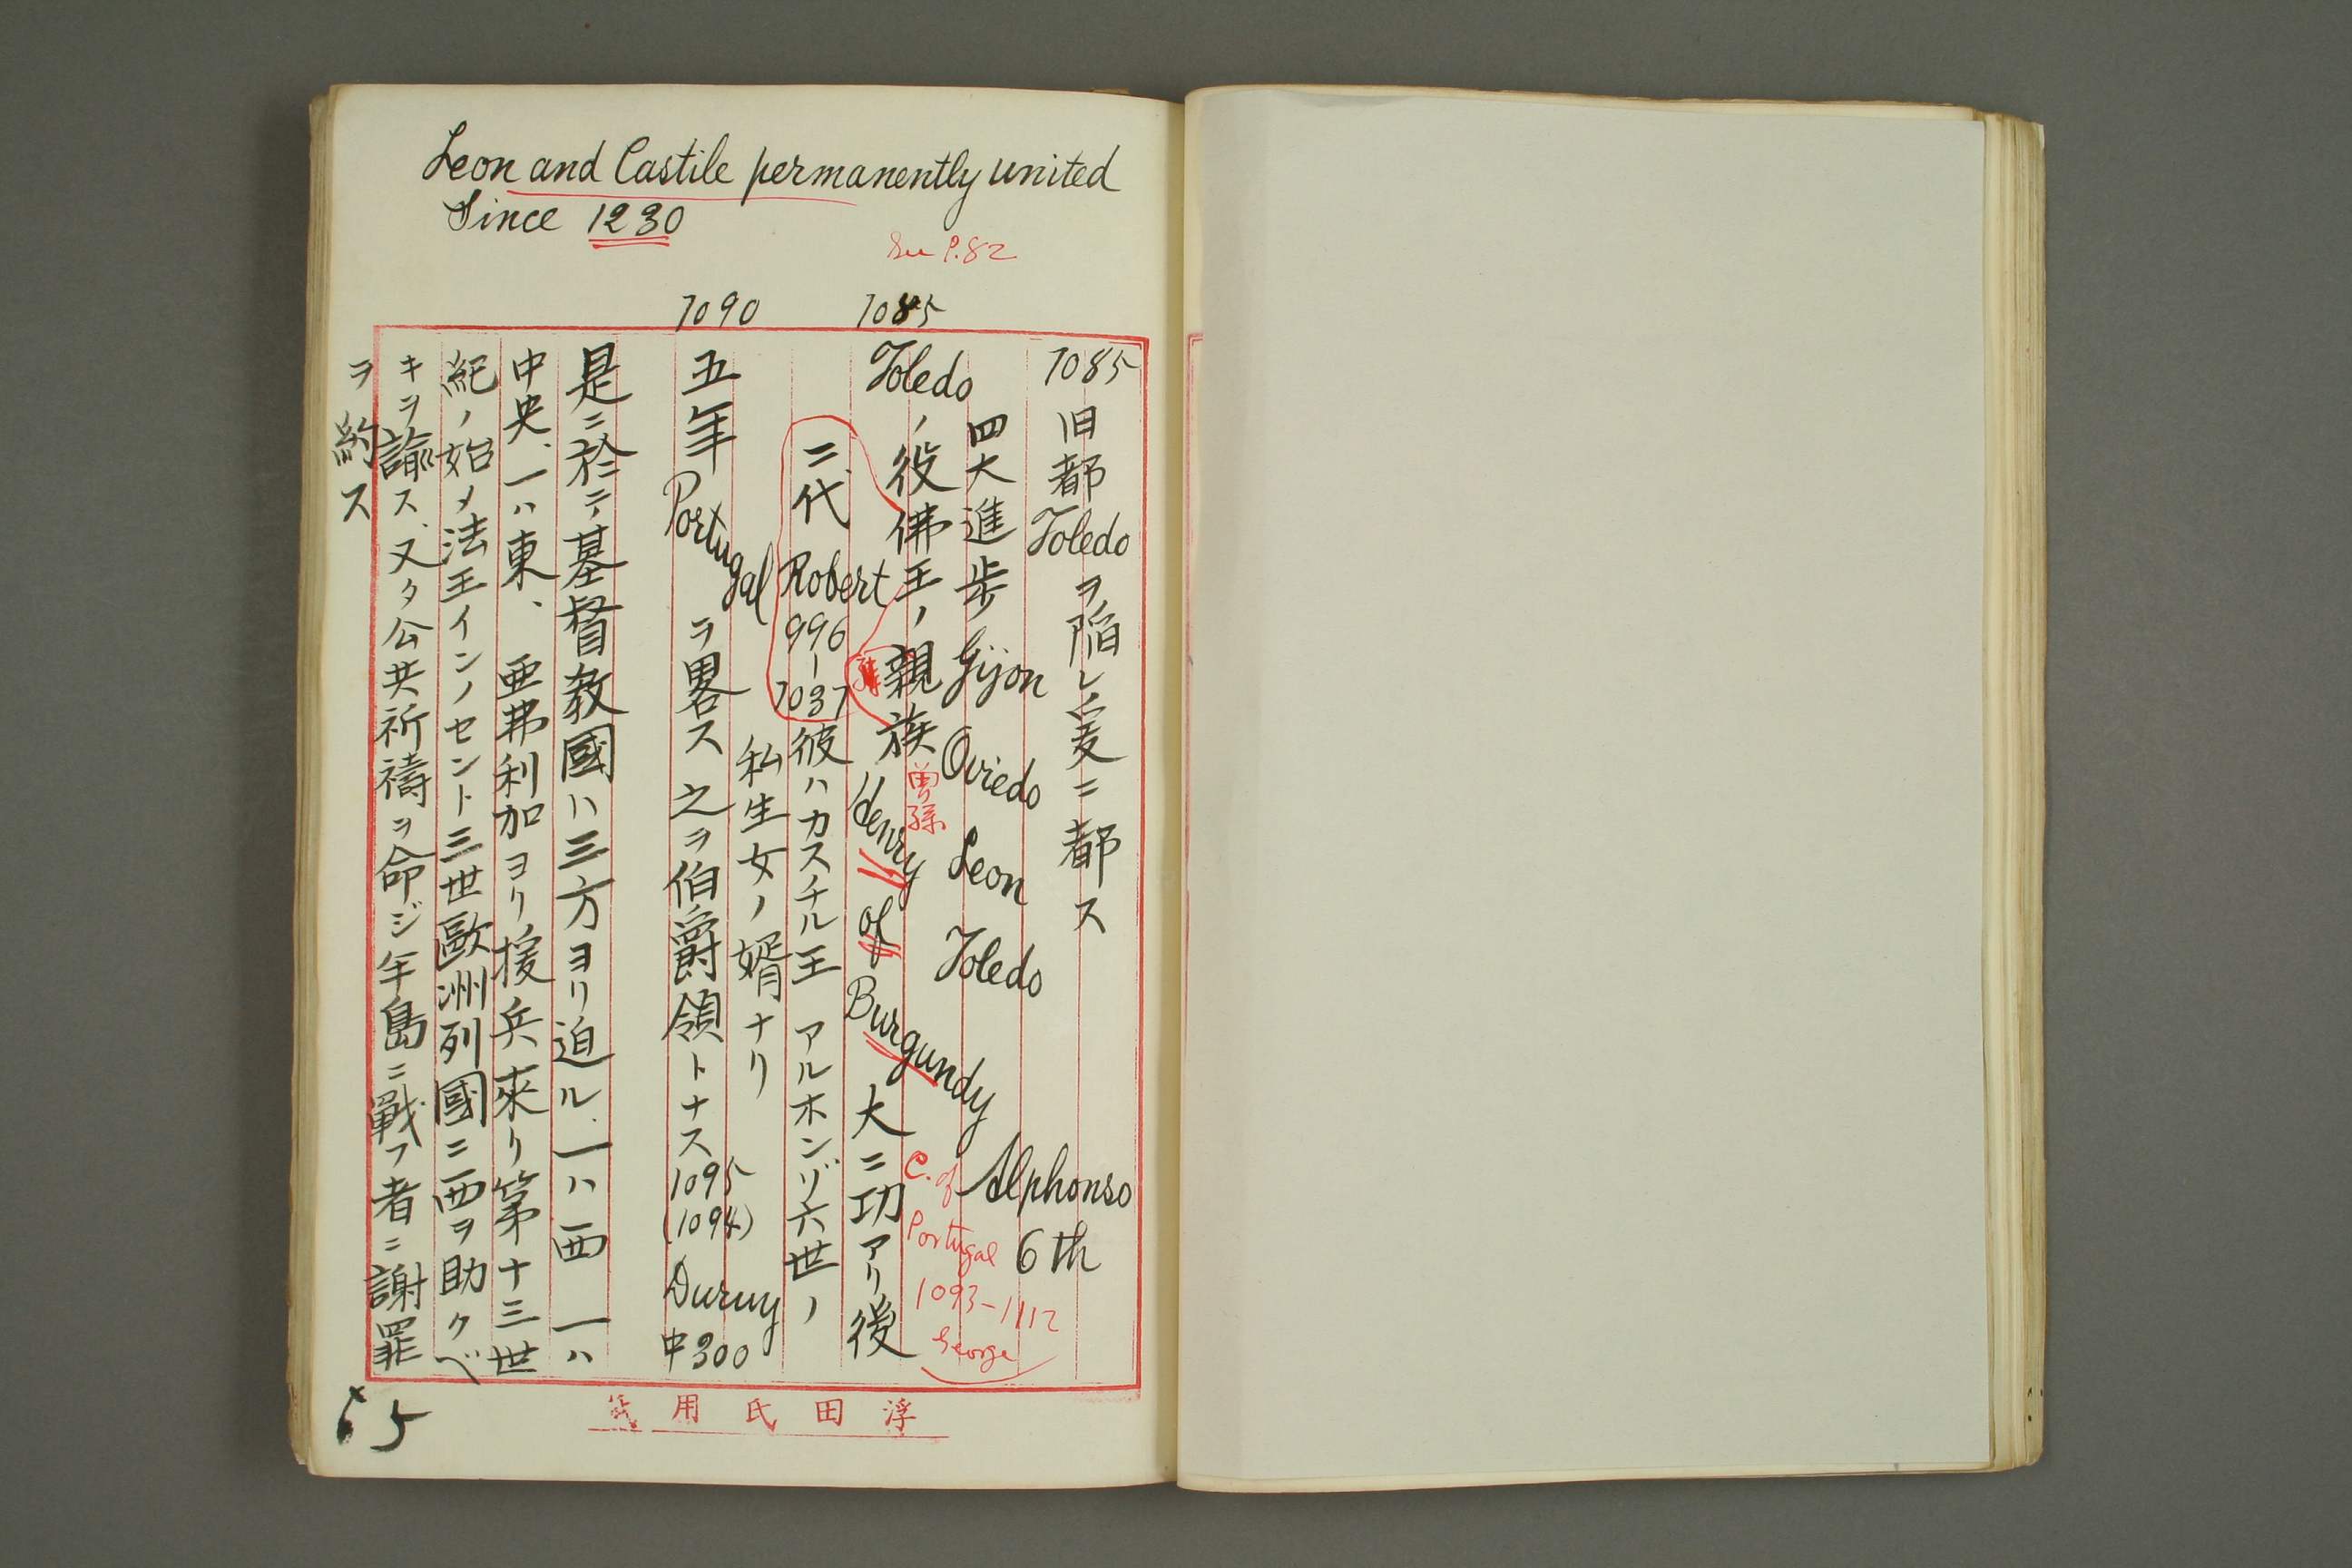 Leon and Castile permanently united
Since 1230
See P.82
1085
1090
1085 旧都Toledoヲ陥レ爰ニ都ス
四大進歩 Gijon Oviedo Leon Toledo
Alphonso 6th
Toledoノ役佛王ノ親族 Henry of Burgundy 大ニ功アリ後
曽孫
C. of Portugal 1093-1112 George
二代 Robert 996-1037
彼ハカスチル王 アルホンゾ六世ノ
私生女ノ婿ナリ
五年 Portugal ヲ畧ス之ヲ伯爵領トナス 1095 (1094) Duruy 中300
是ニ於テ基督教國ハ三方ヨリ迫ル、一ハ西 一ハ
中央、一ハ東、亜弗利加ヨリ援兵来リ第十三世
紀ノ始メ法王インノセント三世歐洲列國ニ西ヲ助クベ
キヲ諭ス、又タ公共祈禱ヲ命ジ半島ニ戰フ者ニ謝罪
ヲ約ス
浮田氏用箋
65